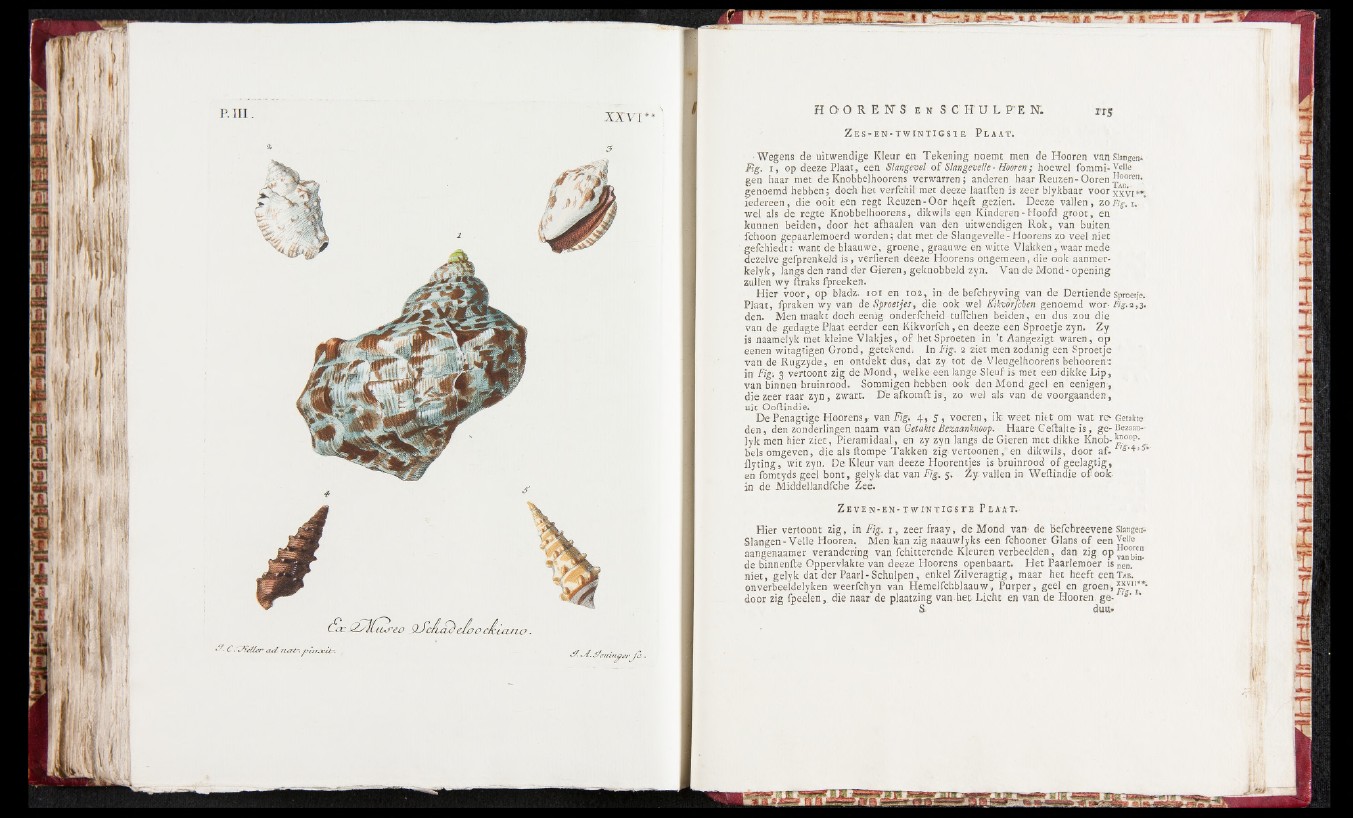 P. III.
XXVI**
2
3
1
4
5
Ex Museo Schadeloockiano.
J. C. Keller ad nat. pinxit.
J. A. Joninger sc.
HOORENS EN SCHULPEN. 115
ZES-EN-TWINTIGSTE PLAAT.
Wegens de uitwendige Kleur en Tekening noemt men de Hooren van Slangen-
Fig. 1, op deeze Plaat, een Slangevel of Slangevelle-Hooren; hoewel sommi- Velle
gen haar met de Knobbelhoorens verwarren; anderen haar Reuzen-Ooren Hooren.
genoemd hebben; doch het verschil met deeze laatsten is zeer blykbaar voor TAB. XXVI**.
iedereen, die ooit een regt Reuzen-Oor heeft gezien. Deeze vallen, zo Fig. 1.
wel als de regte Knobbelhoorens, dikwils een Kinderen-Hoofd groot, en
kunnen beiden, door het afhaalen van den uitwendigen Rok, van buiten
schoon gepaarlemoerd worden; dat met de Slangevelle-Hoorens zo veel niet
geschiedt: want de blaauwe, groene, graauwe en witte Vlakken, waar mede
dezelve gesprenkeld is, versieren deeze Hoorens ongemeen, die ook aanmer-
kelyk, langs den rand der Gieren, geknobbeld zyn. Van de Mond-opening
zullen wy straks spreeken.
Hier voor, op bladz. 101 en 102, in de beschryving van de Dertiende Sproetje.
Plaat, spraken wy van de Sproetjes, die ook wel Kikvorschen genoemd wor- Fig. 2, 3.
den. Men maakt doch eenig onderscheid tusschen beiden, en dus zou die
van de gedagte Plaat eerder een Kikvorsch, en deeze een Sproetje zyn. Zy
is naamelyk met kleine Vlakjes, of het Sproeten in 't Aangezigt waren, op
eenen witagtigen Grond, getekend. In Fig. 2 ziet men zodanig een Sproetje
van de Rugzyde, en ontdekt dus, dat zy tot de Vleugelhoorens behooren:
in Fig. 3 vertoont zig de Mond, welke een lange Sleuf is met een dikke Lip,
van binnen bruinrood. Sommigen hebben ook den Mond geel en eenigen,
die zeer raar zyn, zwart. De afkomst is, zo wel als van de voorgaanden,
uit Oostindie.
De Penagtige Hoorens, van Fig. 4, 5, voeren, ik weet niet om wat re- Getakte
den, den zonderlingen naam van Getakte Bezaanknoop. Haare Gestalte is, ge- Bezaan-
lyk men hier ziet, Pieramidaal, en zy zyn langs de Gieren met dikke Knob- knoop.
bels omgeven, die als stompe Takken zig vertoonen, en dikwils, door af- Fig. 4, 5.
slyting, wit zyn. De Kleur van deeze Hoorentjes is bruinrood of geelagtig,
en somtyds geel bont, gelyk dat van Fig. 5. Zy vallen in Westindie of ook
in de Middellandsche Zee.
ZEVEN-EN-TWINTIGSTE PLAAT.
Hier vertoont zig, in Fig. 1, zeer fraay, de Mond van de beschreevene Slangen-
Slangen-Velle Hooren. Men kan zig naauwlyks een schooner Glans of een Velle
aangenaamer verandering van schitterende Kleuren verbeelden, dan zig op Hooren
de binnenste Oppervlakte van deeze Hoorens openbaart. Het Paarlemoer is van bin-nen.
niet, gelyk dat der Paarl-Schulpen, enkel Zilveragtig, maar het heeft een TAB.
onverbeeldelyken weerschyn van Hemelschblaauw, Purper, geel en groen, XXVII**.
door zig speelen, die naar de plaatzing van het Licht en van de Hooren ge- Fig. 1.
S duu-